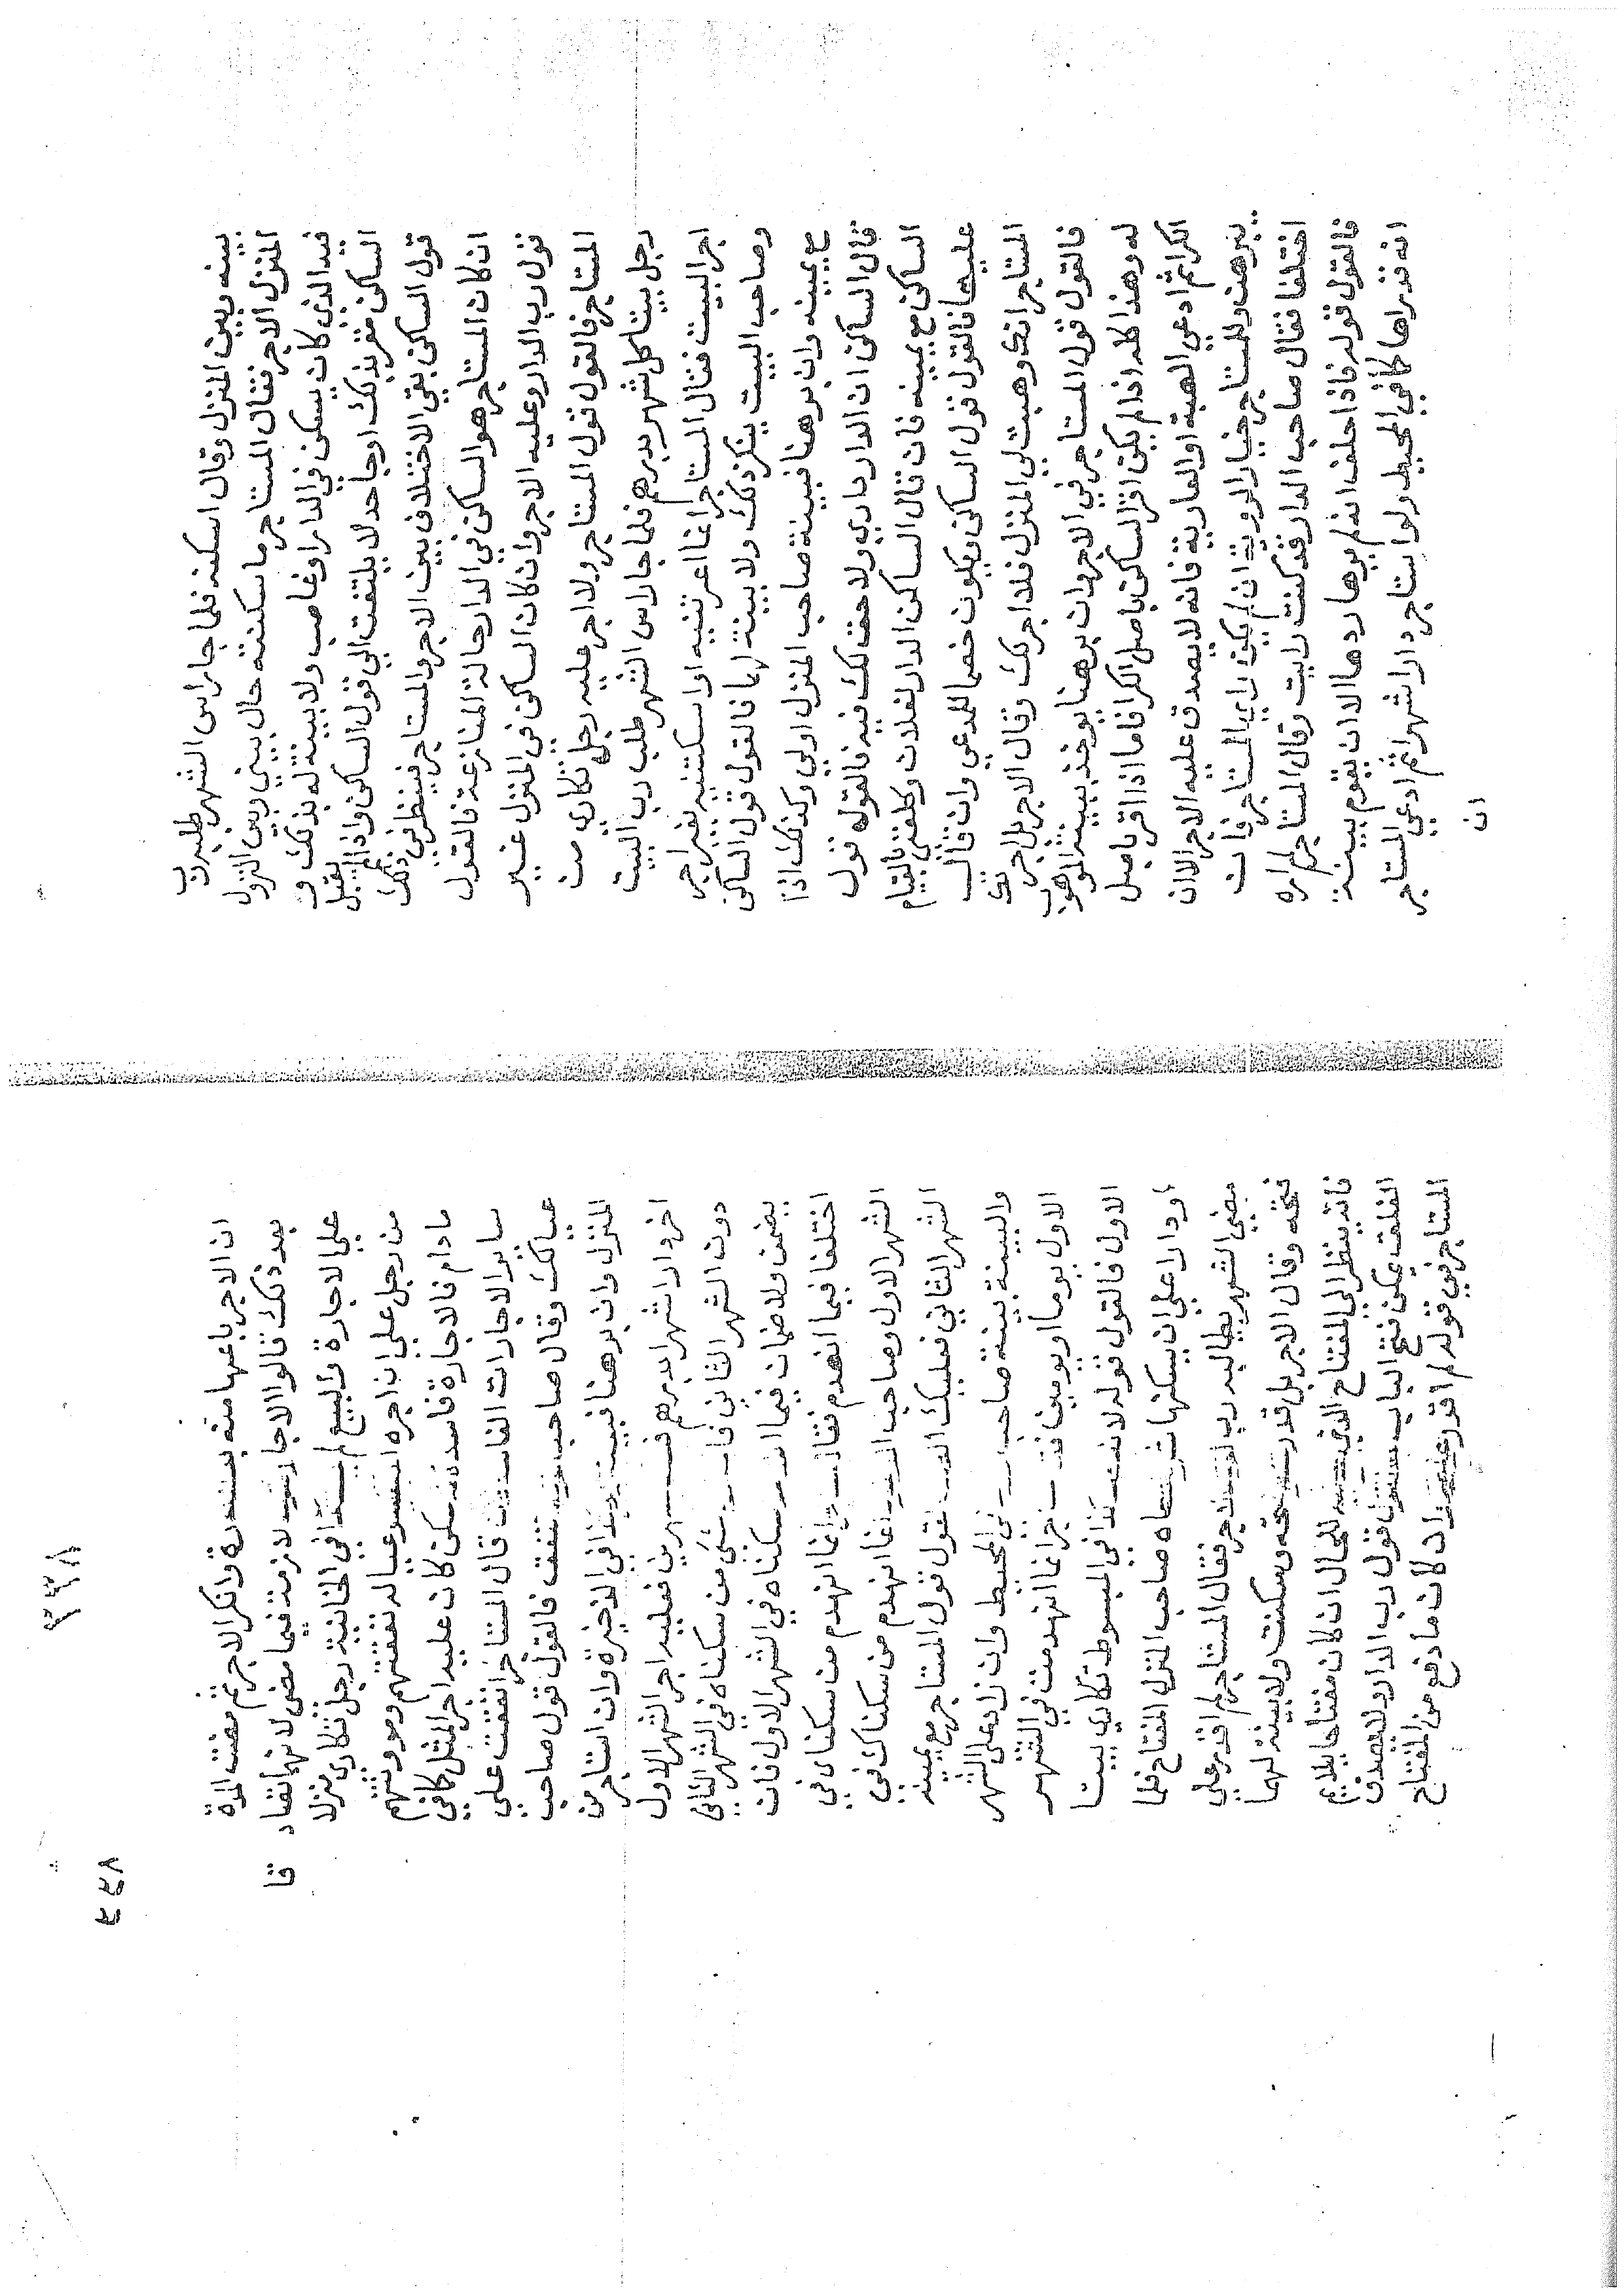 بينه وبين المنزل وقال اسكنه فلما جا راس الشهر طلب رب
المنزل الاجر فقال المستاجر ما سكنته حال بيني وبين النزول
فيه الذي كان يسكن في الدار او غاصب ولا بينة له بذلك و
الساكن مقر بذلك او جاحد لا يلتفت الي قول الساكن واذا لم يقبل
قول الساكن بقي الاختلاف بين الاجر والمستاجر فينظر في ذلك
ان كان المستاجر هو الساكن في الدار حالة المنازعة فالقول
قول رب الدار وعليه الاجر وان كان الساكن في المنزل غير
المستاجر فالقول قول المستاجر ولا اجر عليه رجل تكاري من
رجل بيتا كل شهر بدرهم فلما جا راس الشهر طلب رب البيت
اجر البيت فقال المستاجر انما اعرتنيه او اسكنتنيه بغير اجر
وصاحب البيت ينكر ذلك ولا بينة لهما فالقول قول الساكن
مع يمينه وان برهنا فبينة صاحب المنزل اولي وكذلك اذا
قال الساكن ان الدار داري ولا حق لك فيه فالقول قول
الساكن مع يمينه فان قال الساكن الدار لفلان وكلني بالقيام
عليها فالقول قول الساكن ويكون خصما للمدعي وان قال
المستاجر انك وهبت لي المنزل فلا اجر لك وقال الاجر بل اجرتك
فالقول قول المستاجر في الاجر وان برهنا يوخذ ببينة الموهوب
له وهذا كله اذا لم يكن اقر الساكن باصل الكرا فاما اذا اقر باصل
الكرا ثم ادعي الهبة او العارية فانه لا يصدق عليه الاجر الا ان
يبرهن وللمستاجر خيار الروية ان لم يكن راي المستاجر فان
اختلفا فقال صاحب الدار قد كنت رايت وقال المستاجر لم اره
فالقول قوله فاذا حلف انه لم يرها ردها الا ان يقوم بينة
انه قد راها كذا في المحيط ولو استاجر دارا شهرا ثم ادعي المستاجر
ان
٢٢٨
ان الاجر باعها منه بعد ذلك وانكر الاجر ثم مضت المدة
بعد ذلك قالوا الاجارة لازمة فيما مضي لانهما اتفقا
علي الاجارة والبيع لم يثبت كذا في الخانية رجل تكاري منزلا
من رجل علي ان اجره عياله نفقتهم ومؤونتهم
ما دام فالاجارة فاسدة فان سكن كان عليه اجر المثل كما في
ساير الاجارات الفاسدة فان قال المستاجر انفقت علي
عيالك وقال صاحب لم تنفق فالقول قول صاحب
المنزل وان برهنا فبينة كذا في الذخيرة وان استاجر من
اخر دارا شهرا بدرهم شهرين فعليه اجر الشهر الاول
دون الشهر الثاني فان شي من سكناه في الشهر الثاني
يضمن ولا ضمان فيما من سكناه في الشهر الاول فان
اختلفا فيما انهدم فقال انما انهدم من سكناي في
الشهر الاول وصاحب انما انهدم من سكناك في
الشهر الثاني فعليك فالقول قول المستاجر مع يمينه
والبينة بينة صاحب في المحيط وان زاد علي الشهر
الاول يوما او يومين المستاجر انما انهدمت في الشهر
الاول فالقول قوله كذا في المبسوط تكاري بيتا
او دارا علي ان يسكنها شهرا صاحب المنزل المفتاح فلما
مضي الشهر يطالبه رب الاجر فقال المستاجر لم اقدر علي
فتحه وقال الاجر بل قدرت علي فتحه وسكنت ولا بينة لهما
فانه ينظر الي المفتاح للحال ان كان مفتاحا يلايم
الغلق يمكن فتح الباب فالقول قول رب الدار ولا يصدق
المستاجر في قوله لم اقدر وان كان ما دفع من المفتاح
قا
٢٢٨